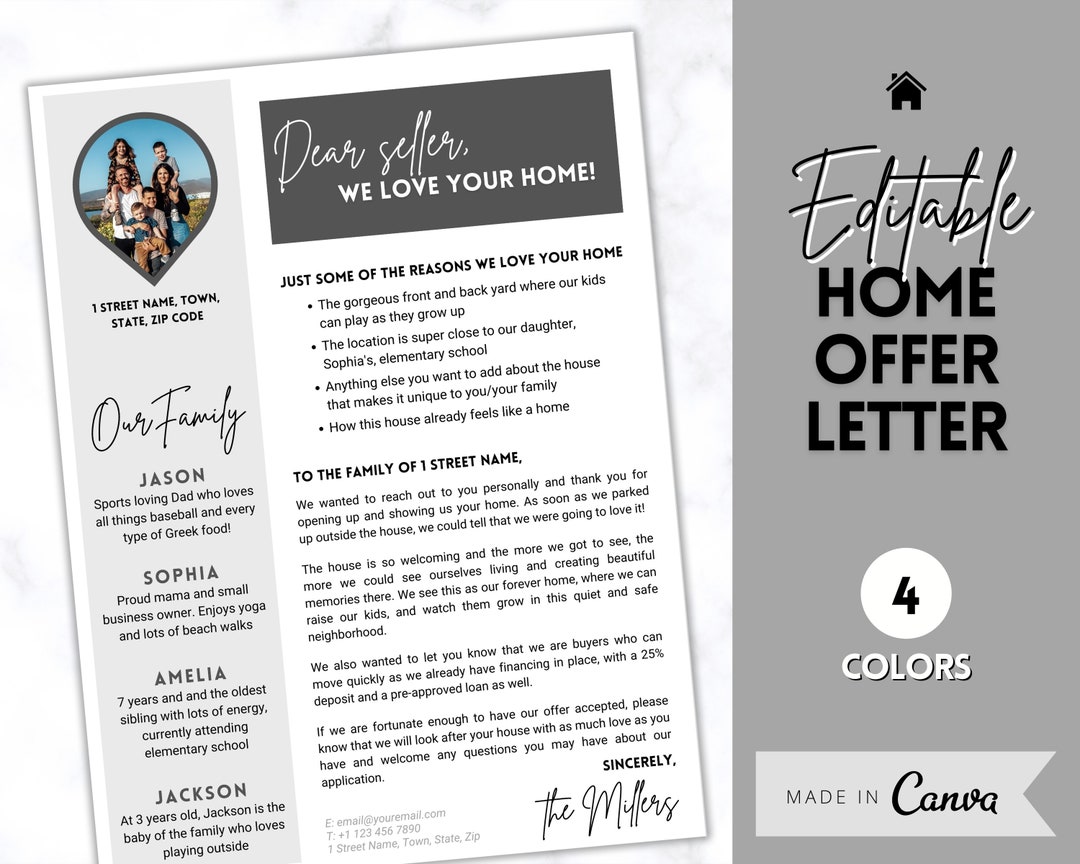 Dear seller,
WE LOVE YOUR HOME!
1 STREET NAME, TOWN,
STATE, ZIP CODE
Our Family
JASON
Sports loving Dad who loves
all things baseball and every
type of Greek food!
SOPHIA
Proud mama and small
business owner. Enjoys yoga
and lots of beach walks
AMELIA
7 years and and the oldest
sibling with lots of energy,
currently attending
elementary school
JACKSON
At 3 years old, Jackson is the
baby of the family who loves
playing outside
JUST SOME OF THE REASONS WE LOVE YOUR HOME
• The gorgeous front and back yard where our kids
can play as they grow up
• The location is super close to our daughter,
Sophia's, elementary school
• Anything else you want to add about the house
that makes it unique to you/your family
• How this house already feels like a home
TO THE FAMILY OF 1 STREET NAME,
We wanted to reach out to you personally and thank you for
opening up and showing us your home. As soon as we parked
up outside the house, we could tell that we were going to love it!
The house is so welcoming and the more we got to see, the
more we could see ourselves living and creating beautiful
memories there. We see this as our forever home, where we can
raise our kids, and watch them grow in this quiet and safe
neighborhood.
We also wanted to let you know that we are buyers who can
move quickly as we already have financing in place, with a 25%
deposit and a pre-approved loan as well.
If we are fortunate enough to have our offer accepted, please
know that we will look after your house with as much love as you
have and welcome any questions you may have about our
application.
SINCERELY,
the Millers
E: email@youremail.com
T: +1 123 456 7890
1 Street Name, Town, State, Zip
Editable
HOME
OFFER
LETTER
4
COLORS
MADE IN Canva